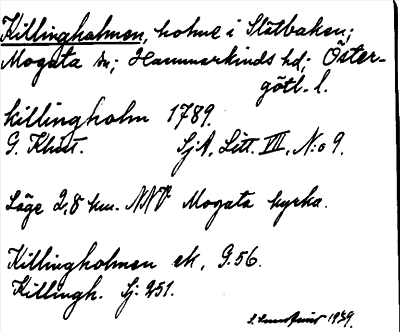 Killingholmen, holme i Slätbaken;
Mogata sn; Hammarkinds hd; Öster-
götl. l.
Killingholm 1789.
G. Klint. SjA, Litt. III, N:o 9.
Läge 2,8 km. NNV Mogata kyrka.
Killingholmen ek, G.56.
Killingh. Sj: 251.
1929.